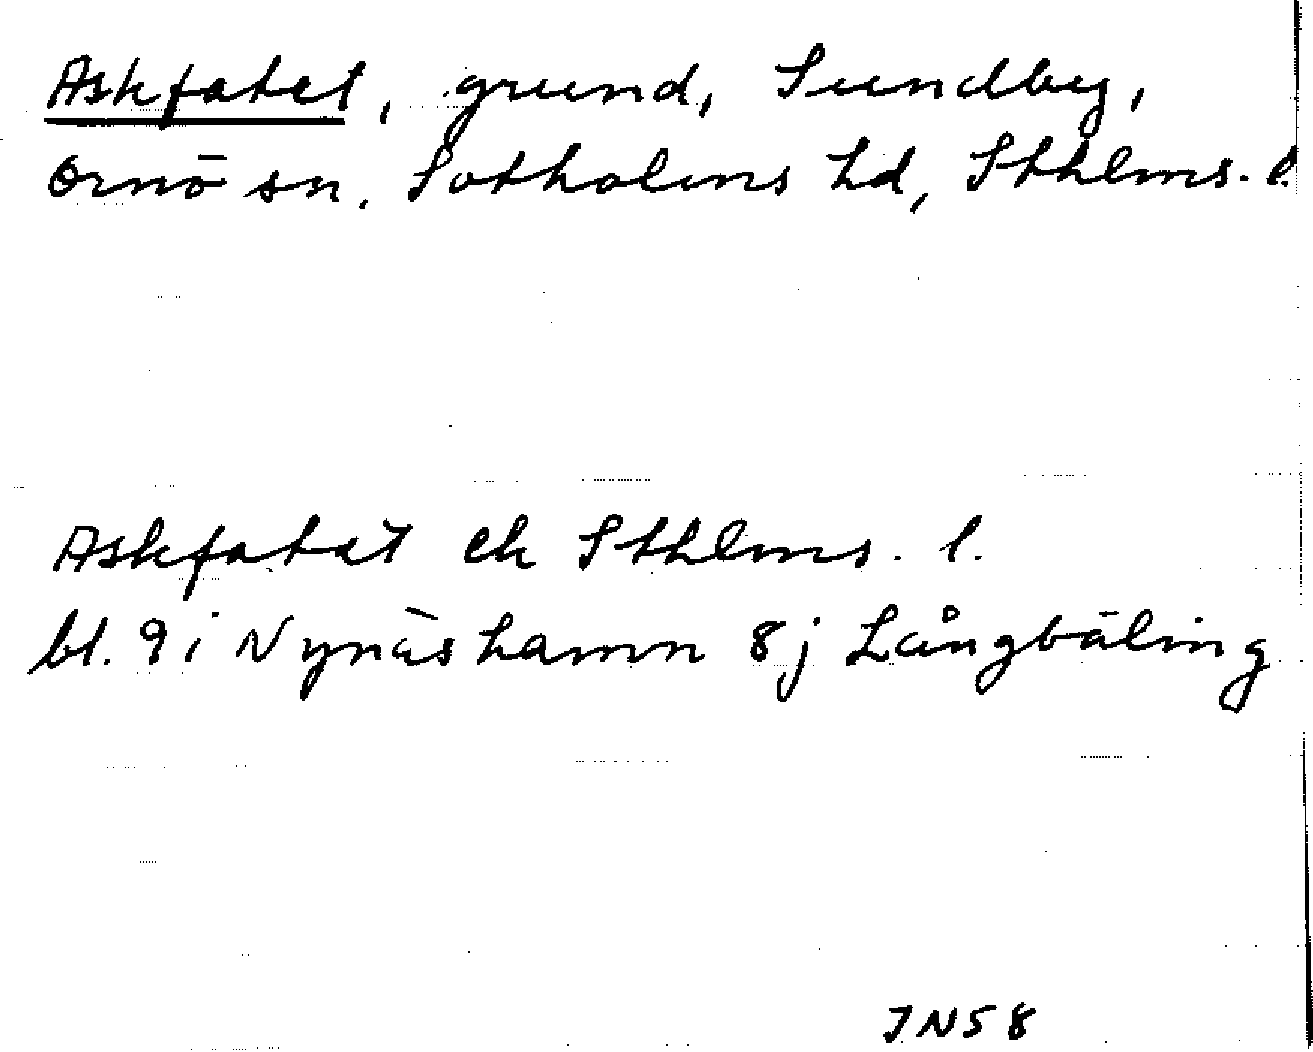 Askfatet, grund, Sundby,
Ornö sn. Sotholms hd, Sthlms. l.
Askfatet ek Sthlms. l.
bl. 9 i Nynäshamn 8j Långbäling
JN58